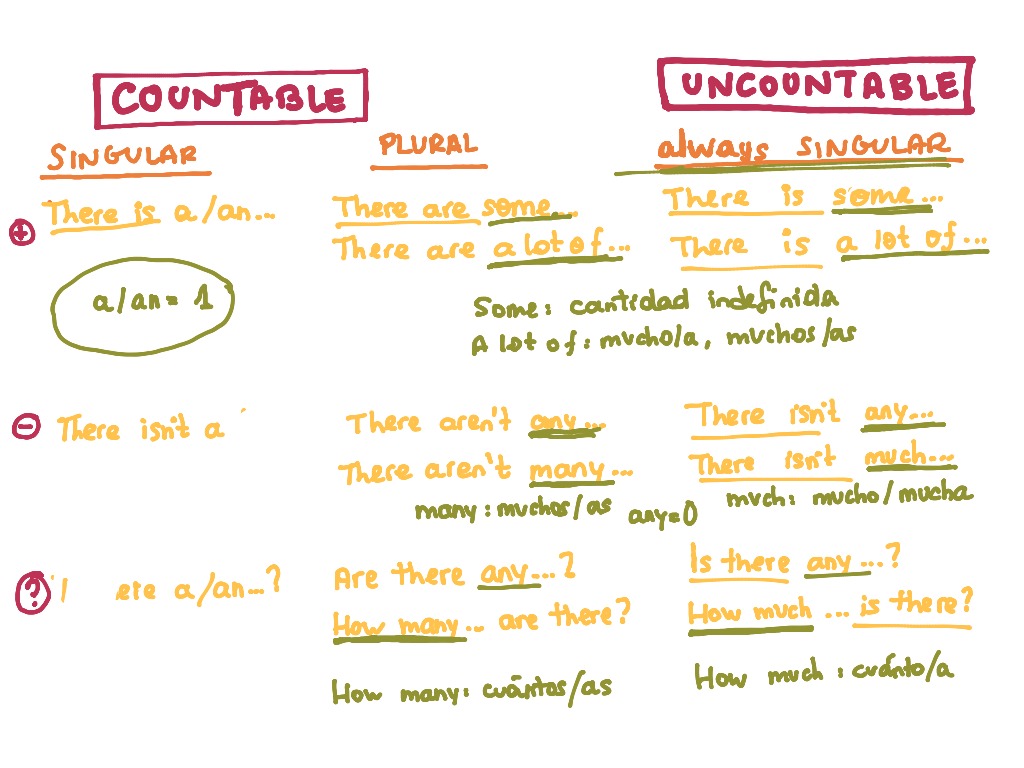 COUNTABLE
UNCOUNTABLE
SINGULAR
PLURAL
always SINGULAR
+
There is a/an...
There are some...
There is some...
There are a lot of...
There is a lot of...
a/an= 1
Some: cantidad indefinida
A lot of: mucho/a, muchos/as
-
There isn't a
There aren't any...
There isn't any...
There aren't many...
There isn't much...
many: muchos/as
any=0
much: mucho/mucha
?
a/an...?
Are there any...?
Is there any...?
How many... are there?
How much ... is there?
How many: cuántos/as
How much: cuánto/a